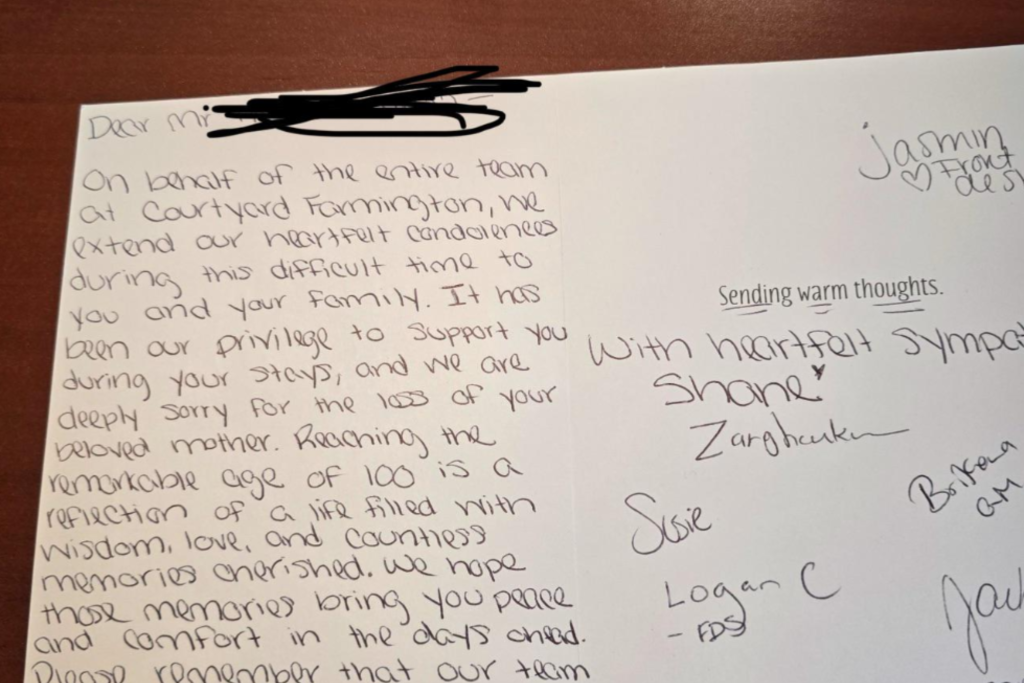 Dear Mr
On behalf of the entire team
at Courtyard Farmington, we
extend our heartfelt condolences
during this difficult time to
you and your family. It has
been our privilege to support you
during your stays, and we are
deeply sorry for the loss of your
beloved mother. Reaching the
remarkable age of 100 is a
reflection of a life filled with
wisdom, love, and countless
memories cherished. We hope
those memories bring you peace
and comfort in the days ahead.
Please remember that our team
Jasmin
Front
Sending warm thoughts.
With heartfelt
Shane
Susie
GM
Logan C
- FDS